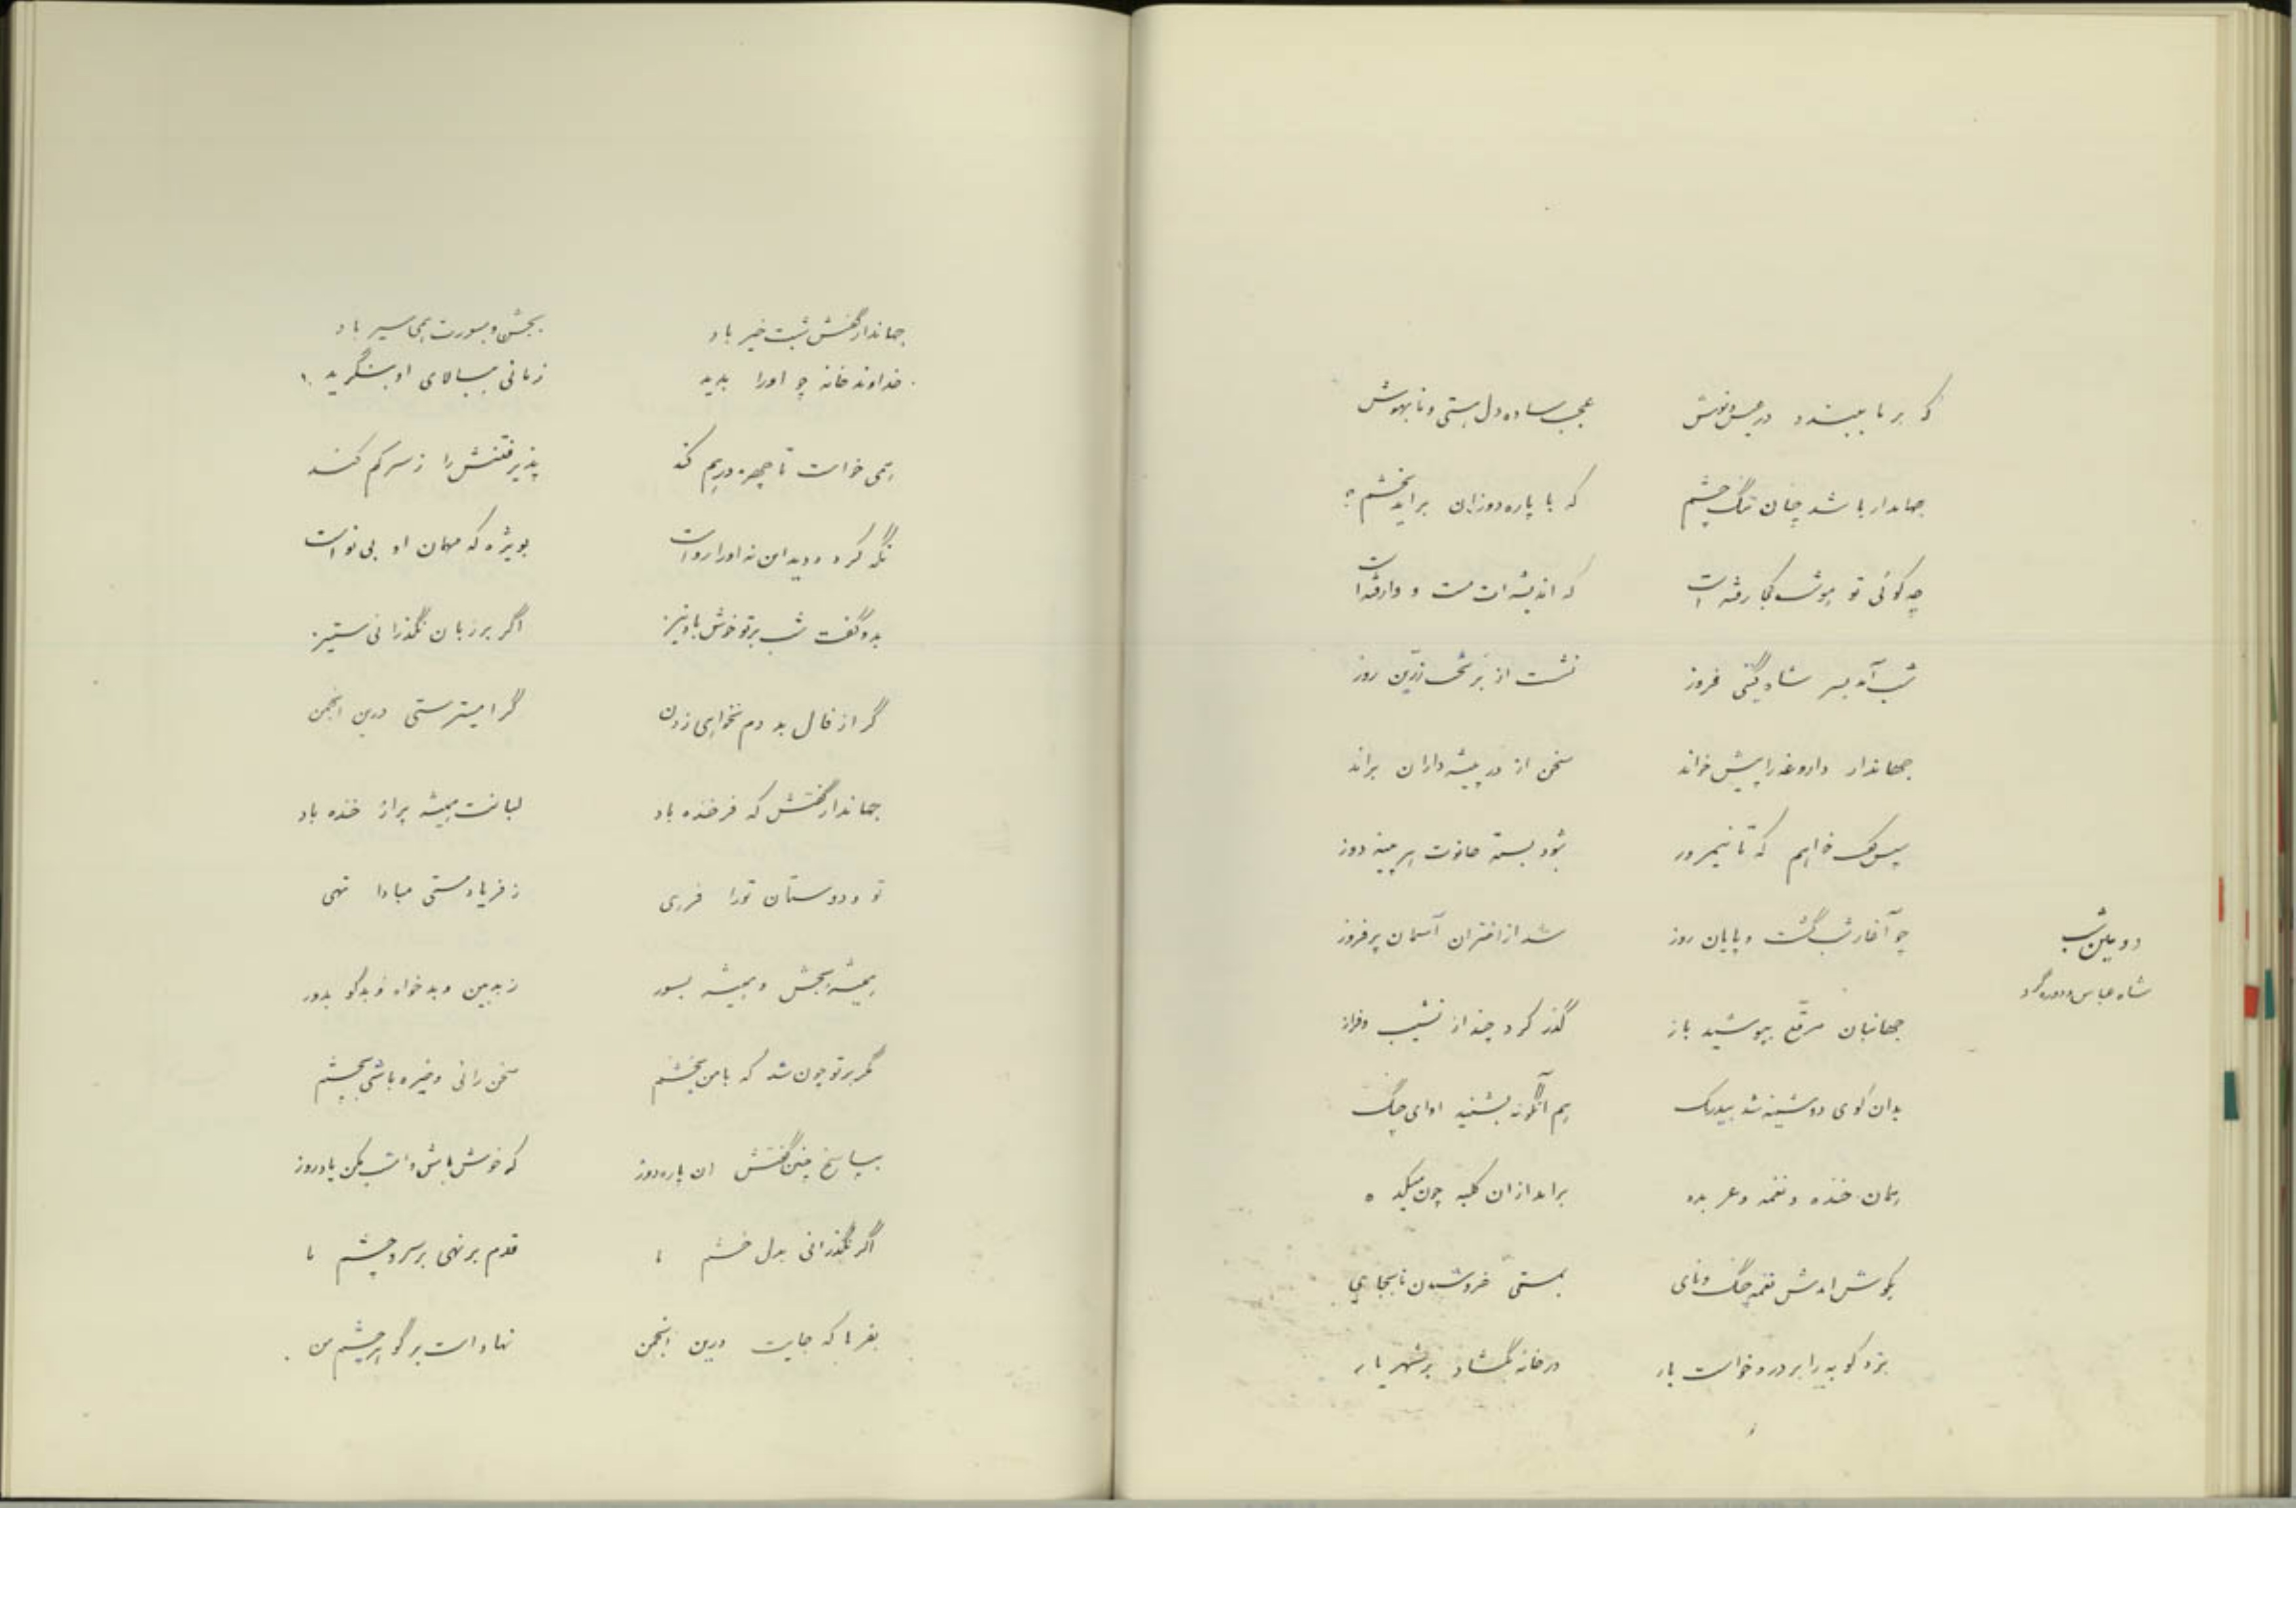 که بر ما ببندد در عیش و نوش    عجب ساده دل هستی و نا بهوش
جهاندار باشد چنان تنگ چشم    که با پاره دوزان براید بخشم ؟
چه گوئی تو هوشت کجا رفته است    که اندیشه ات مست و وارفته است
شب آمد بسر شاه گیتی فروز    نشست از بر تخت زرین روز
جهاندار داروغه را پیش خواند    سخن از در پیشه داران براند
سپس گفت خواهم که تا نیمروز    شود بسته حانوت هر پینه دوز
دومین شب
شاه عباس و دوره گرد
چو آغاز شب گشت و پایان روز    شد از اختران آسمان پرفروز
جهانبان مرقع بپوشید باز    گذر کرد چند از نشیب و فراز
بدان کوی دوشینه شد بیدرنگ    هم آنگونه بشنید اوای چنگ
همان خنده و نغمه و عربده    براید ازان کلبه چون میکده
بگوش امدش نغمه چنگ و نای    بمستی خروشیدن نابجای
بزد کوبه را بر در و خواست بار    در خانه بگشاد بر شهریار
جهاندار گفتش شبت خیر باد    بجشن و بسورت همی سیر باد
خداوند خانه چو اورا بدید    زمانی ببالای او بنگرید
همی خواست تا چهره درهم کند    پذیرفتنش را ز سر کم کند
نگه کرد و دید این نه اورا رواست    بویژه که مهمان او بی نواست
بدو گفت شب بر تو خوش باد نیز    اگر بر زبان نگذرانی ستیز
گر از فال بد دم نخواهی زدن    گرامیترستی درین انجمن
جهاندار گفتش که فرخنده باد    لبانت همیشه پر از خنده باد
تو و دوستان تورا فرهی    ز فریاد مستی مبادا تهی
همیشه بجشن و همیشه بسور    ز بدبین و بدخواه و بدگو بدور
مگر بر تو چون شد که با من بخشم    سخن رانی و خیره باشی بچشم
بپاسخ چنین گفتش ان پاره دوز    که خوش باش و امشب مکن یاد روز
اگر نگذرانی بدل خشم ما    قدم بر نهی بر سر و چشم ما
بفرما که جایت درین انجمن    نهاد است بر گوهر چشم من